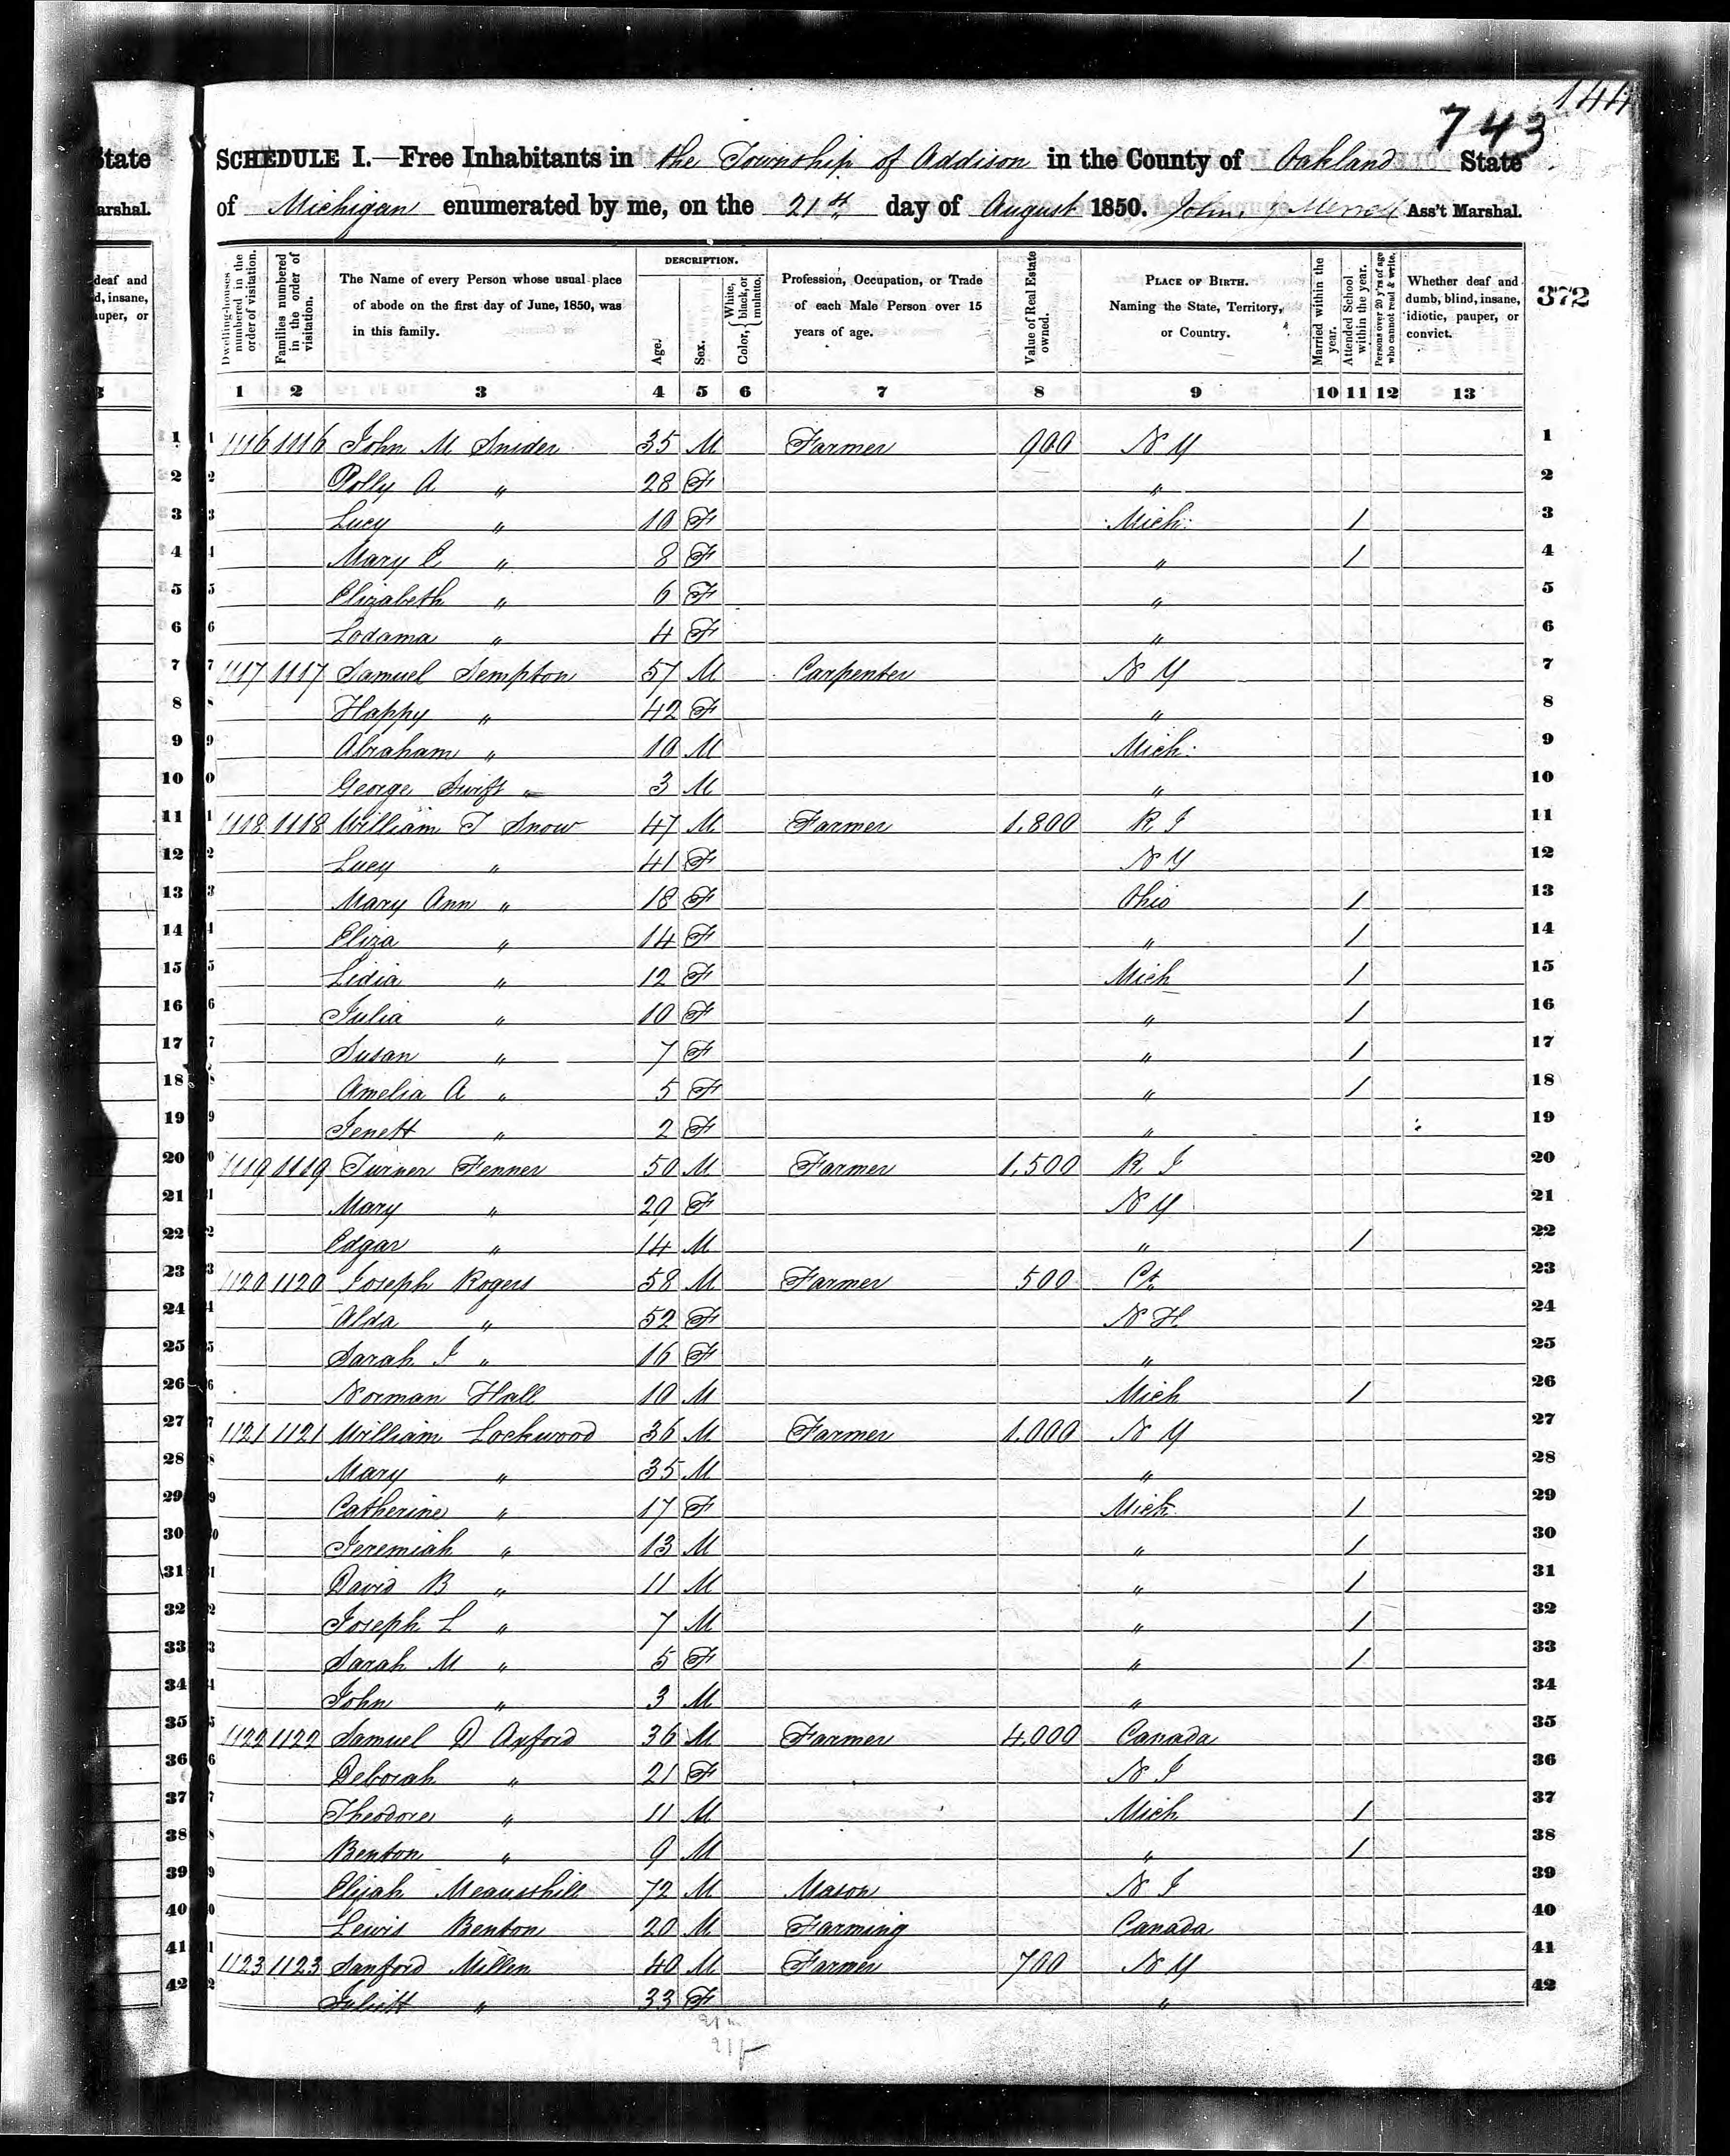 144
743
SCHEDULE I.—Free Inhabitants in the Township of Addison in the County of Oakland State
of Michigan enumerated by me, on the 21st day of August 1850. John Ass't Marshal.
State
arshal.
372
Dwelling-houses numbered in the order of visitation.
Families numbered in the order of visitation.
The Name of every Person whose usual place of abode on the first day of June, 1850, was in this family.
DESCRIPTION.
Age.
Sex.
Color, { White, black, or mulatto.
Profession, Occupation, or Trade of each Male Person over 15 years of age.
Value of Real Estate owned.
PLACE OF BIRTH. Naming the State, Territory, or Country.
Married within the year.
Attended School within the year.
Persons over 20 y'rs of age who cannot read & write.
Whether deaf and dumb, blind, insane, idiotic, pauper, or convict.
deaf and
d, insane,
auper, or
1 2 3 4 5 6 7 8 9 10 11 12 13
1 1116 1116 John M Snider 35 M Farmer 900 N Y 1
2 Polly A " 28 F " 2
3 Lucy " 10 F Mich 1 3
4 Mary E " 8 F " 1 4
5 Elizabeth " 6 F " 5
6 Lodama " 4 F " 6
7 1117 1117 Samuel Sempton 57 M Carpenter N Y 7
8 Happy " 42 F " 8
9 Abraham " 10 M Mich 9
10 George Swift " 3 M " 10
11 1118 1118 William T Snow 47 M Farmer 1,800 R I 11
12 Lucy " 41 F N Y 12
13 Mary Ann " 18 F Ohio 1 13
14 Eliza " 14 F " 1 14
15 Lidia " 12 F Mich 1 15
16 Julia " 10 F " 1 16
17 Susan " 7 F " 1 17
18 Amelia A " 5 F " 1 18
19 Jenett " 2 F " 19
20 1119 1119 Turner Fenner 50 M Farmer 1,500 R I 20
21 Mary " 29 F N Y 21
22 Edgar " 14 M " 1 22
23 1120 1120 Joseph Rogers 58 M Farmer 500 Ct 23
24 Alda " 52 F N H 24
25 Sarah J " 16 F " 25
26 Norman Hall 10 M Mich 1 26
27 1121 1121 William Lockwood 36 M Farmer 1,000 N Y 27
28 Mary " 35 M " 28
29 Catherine " 17 F Mich 1 29
30 Jeremiah " 13 M " 1 30
31 David B " 11 M " 1 31
32 Joseph L " 7 M " 1 32
33 Sarah M " 5 F " 1 33
34 John " 3 M " 34
35 1122 1122 Samuel D Axford 36 M Farmer 4,000 Canada 35
36 Deborah " 21 F N J 36
37 Theodore " 11 M Mich 1 37
38 Benton " 9 M " 1 38
39 Elijah 72 M Mason N J 39
40 Lewis Benton 20 M Farming Canada 40
41 1123 1123 Sanford Millen 40 M Farmer 700 N Y 41
42 Juliett " 33 F " 42
21 m
21 f